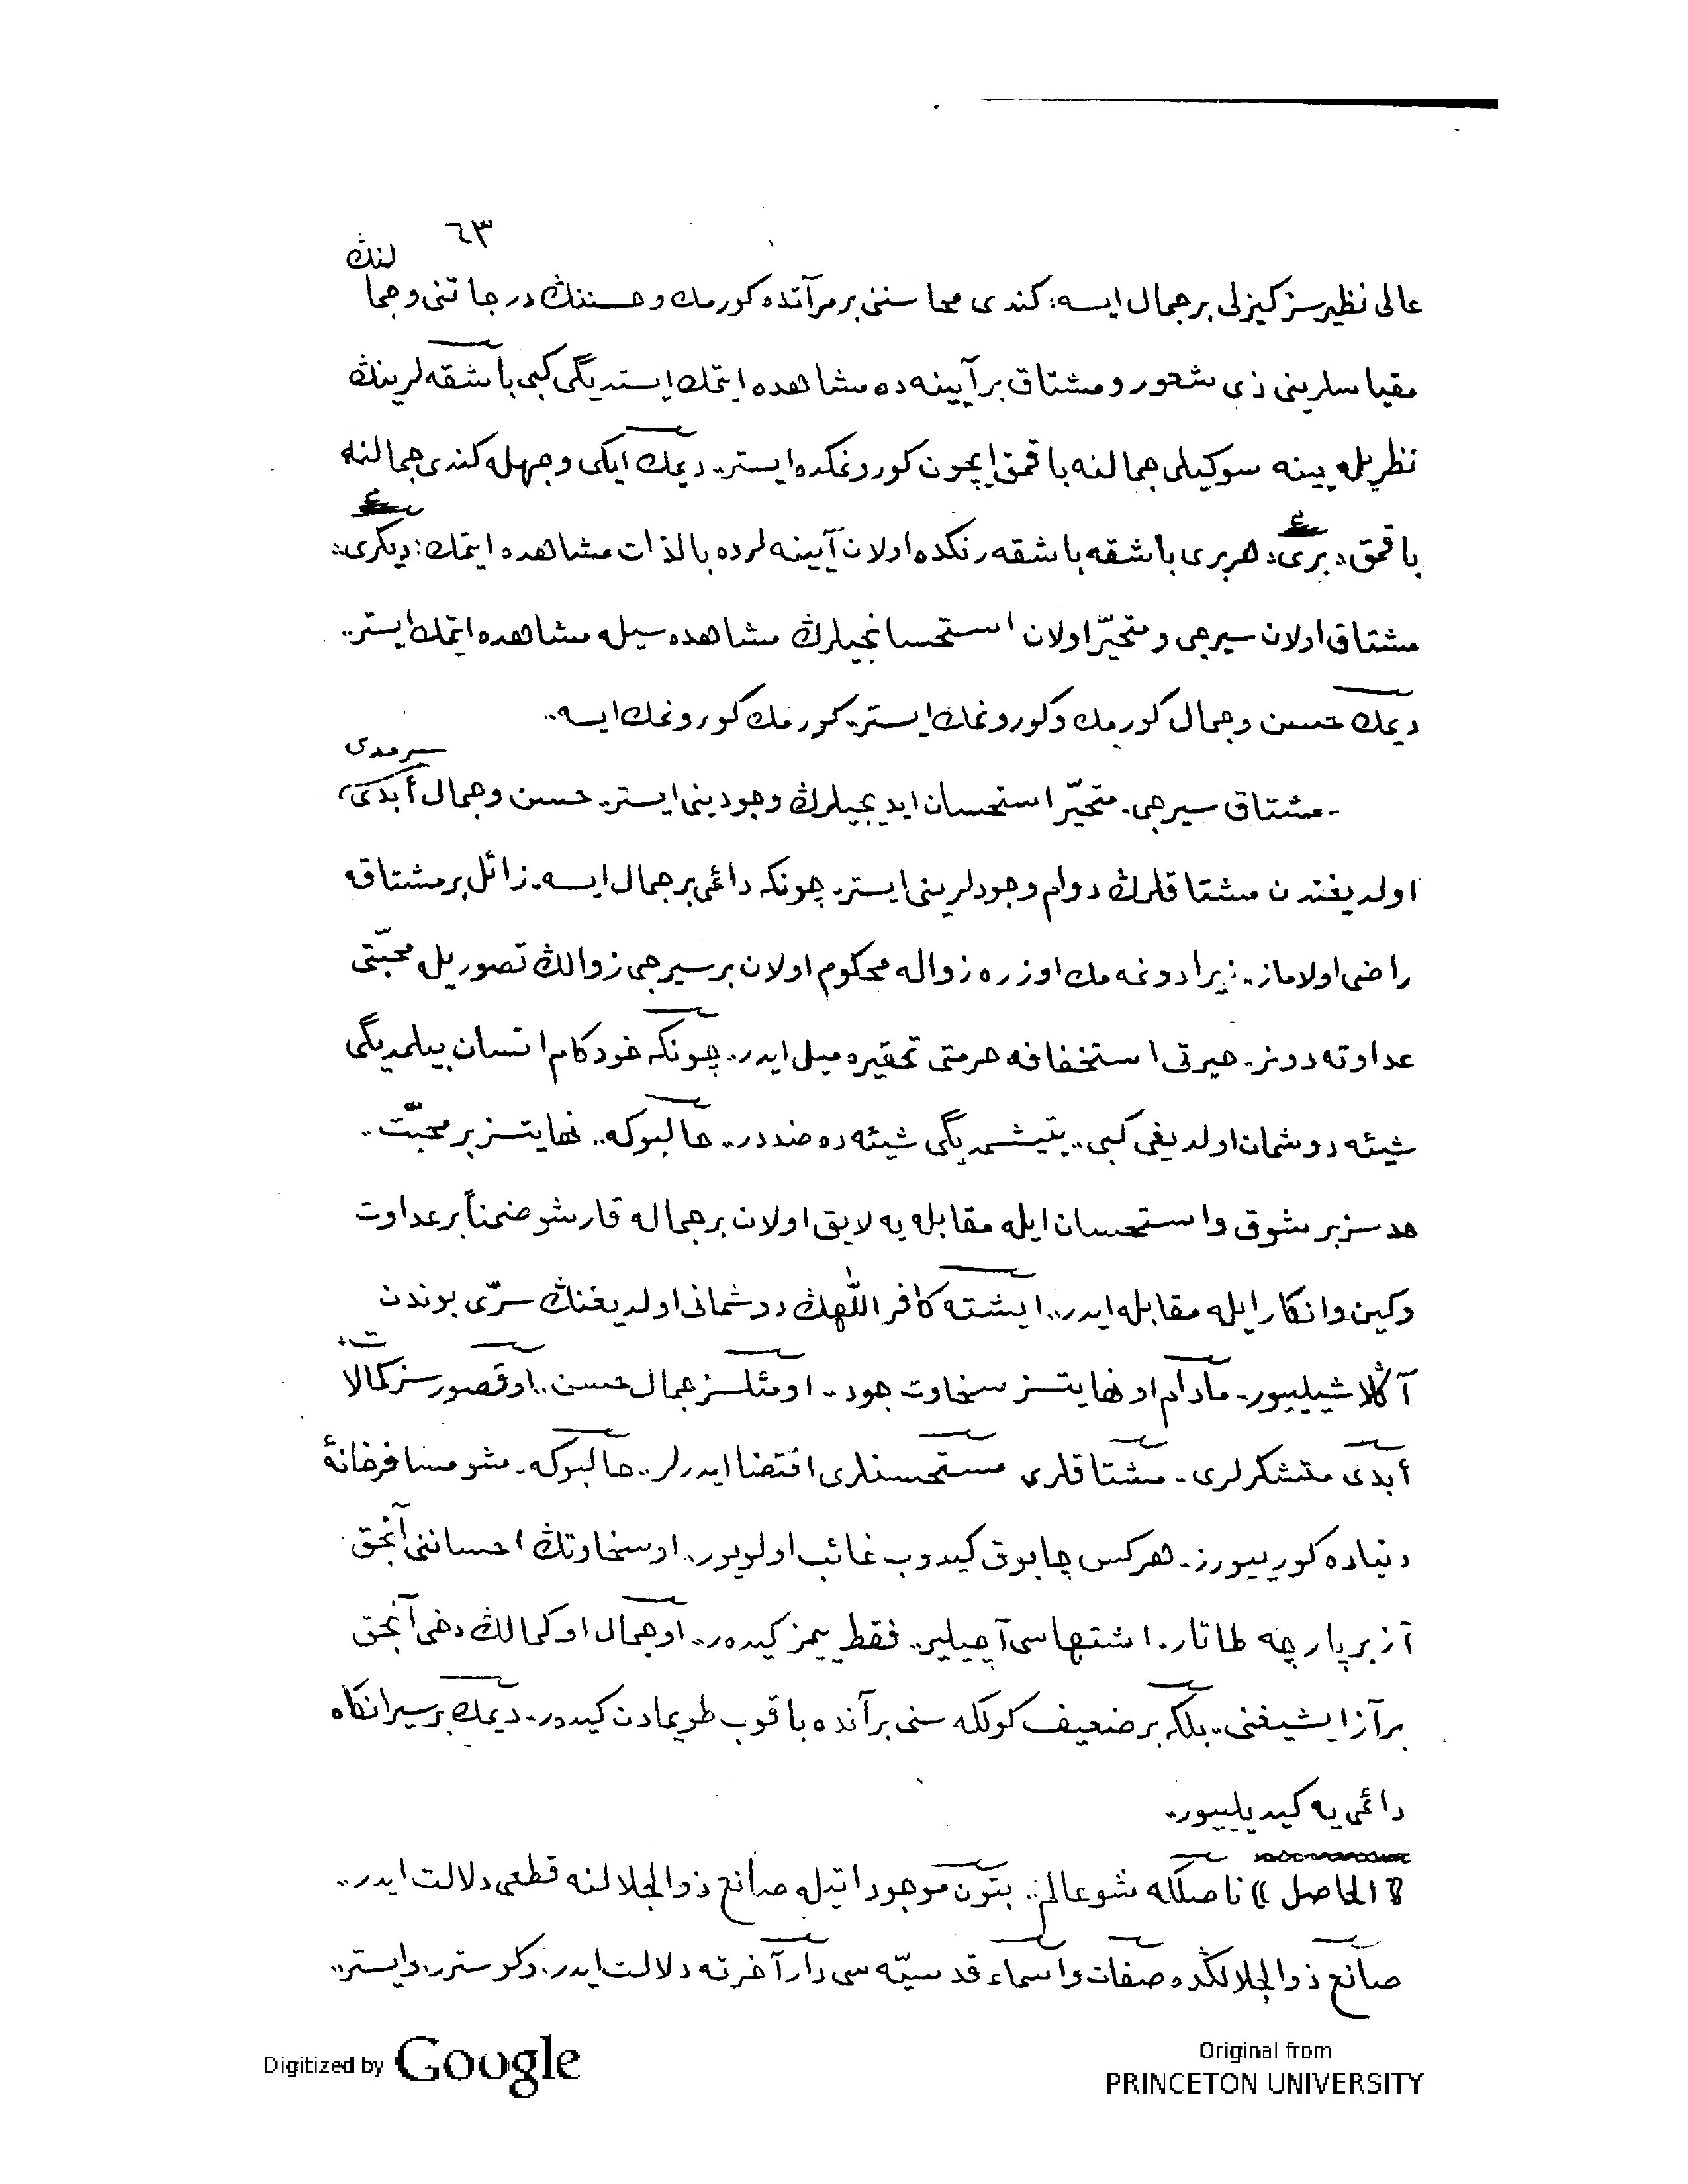 ٦٣
عالى نظيرسز كيزلى برجمال ايسه؛ كندى محاسننى برمرآتده كورمك وحسننڭ درجاتنى وجمالنڭ
مقياسلرينى ذى شعور ومشتاق برآيينه‌ده مشاهده ايتمك ايستديگى كبى باشقه‌لرينڭ
نظريله يينه سوكيلى جمالنه باقمق ايچون كورونمكده ايستر.. ديمك ايكى وجهله كندى جمالنه
باقمق؛ برى؛ هربرى باشقه باشقه رنكده اولان آيينه‌لرده بالذات مشاهده ايتمك؛ ديكرى؛
مشتاق اولان سيرجى ومتحيّر اولان استحسانجيلرڭ مشاهده‌سيله مشاهده ايتمك ايستر..
ديمك حسن وجمال كورمك وكورونمك ايستر. كورمك كورونمك ايسه..
-مشتاق سيرجى. متحيّر استحسان ايديجيلرڭ وجودينى ايستر. حسن وجمال أبدى، سرمدى
اولديغندن مشتاقلرڭ دوام وجودلرينى ايستر. چونكه دائمى برجمال ايسه. زائل برمشتاقه
راضى اولاماز.. زيرا دونمه‌مك اوزره زواله محكوم اولان برسيرجى زوالڭ تصوريله محبّتى
عداوته دونر. حيرتى استخفافه حرمتى تحقيره ميل ايدر.. چونكه خودكام انسان بيلمديگى
شيئه دوشمان اولديغى كبى.. يتيشمديگى شيئه‌ده ضددر.. حالبوكه.. نهايتسز برمحبّت..
حدسز برشوق واستحسان ايله مقابله‌يه لايق اولان برجماله قارشو ضمناً برعداوت
وكين وانكار ايله مقابله ايدر.. ايشته كافر اللّٰهڭ دوشمانى اولديغنڭ سرّى بوندن
آڭلاشيلييور. مادام او نهايتسز سخاوت جود.. او مثلسز جمال حسن.. او قصورسز كمالات؛
أبدى متشكرلرى. مشتاقلرى مستحسنلرى اقتضا ايدرلر.. حالبوكه. شو مسافرخانهٔ
دنياده كورييورز. هركس چابوق كيدوب غائب اولويور.. او سخاوتڭ احساننى آنجق
آز برپارچه طاتار. اشتهاسى آچيلير.. فقط ييمز كيدر.. او جمال او كمالڭ دخى آنجق
برآز ايشيغنى.. بلكه برضعيف كولكه‌سنى برآنده باقوب طويمادن كيدر.. ديمك برسيرانكاه
دائمى‌يه كيديلييور.
﴿الحاصل﴾ ناصلكه شو عالم.. بتون موجوداتيله صانع ذوالجلالنه قطعى دلالت ايدر..
صانع ذوالجلالڭده صفات واسماء قدسيّه‌سى دار آخرته دلالت ايدر. وكوسترر. وايستر..
Digitized by Google
Original from
PRINCETON UNIVERSITY